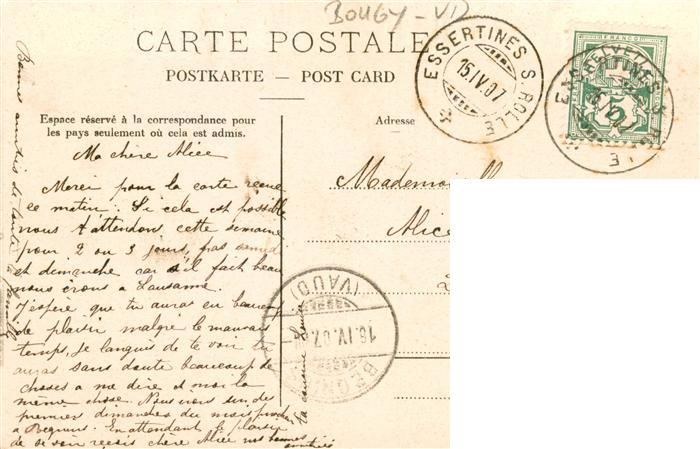 BOUGY - VD
CARTE POSTALE
POSTKARTE — POST CARD
ESSERTINES S. ROLLE
15.IV.07
HELVETIA
FRANCO
5
Espace réservé à la correspondance pour
les pays seulement où cela est admis.
Adresse
Ma chère Alice
Merci pour la carte reçue
ce matin. Si cela est possible
nous t'attendons cette semaine
pour 2 ou 3 jours, pas samedi
et dimanche car s'il fait beau
nous irons a Lausanne.
J'espère que tu auras eu beaucoup
de plaisir malgré le mauvais
temps, je languis de te voir tu
auras sans doute beaucoup de
choses a me dire et moi la
même chose. Nous irons un des
premiers dimanches du mois prochain
a Begnins. En attendant le plaisir
de te voir reçois chère Alice nos bonnes
amitiés
ta cousine
Bonnes amitiés de toute la famille
Mademoiselle
Alice
BEGNINS
(VAUD)
16.IV.07.